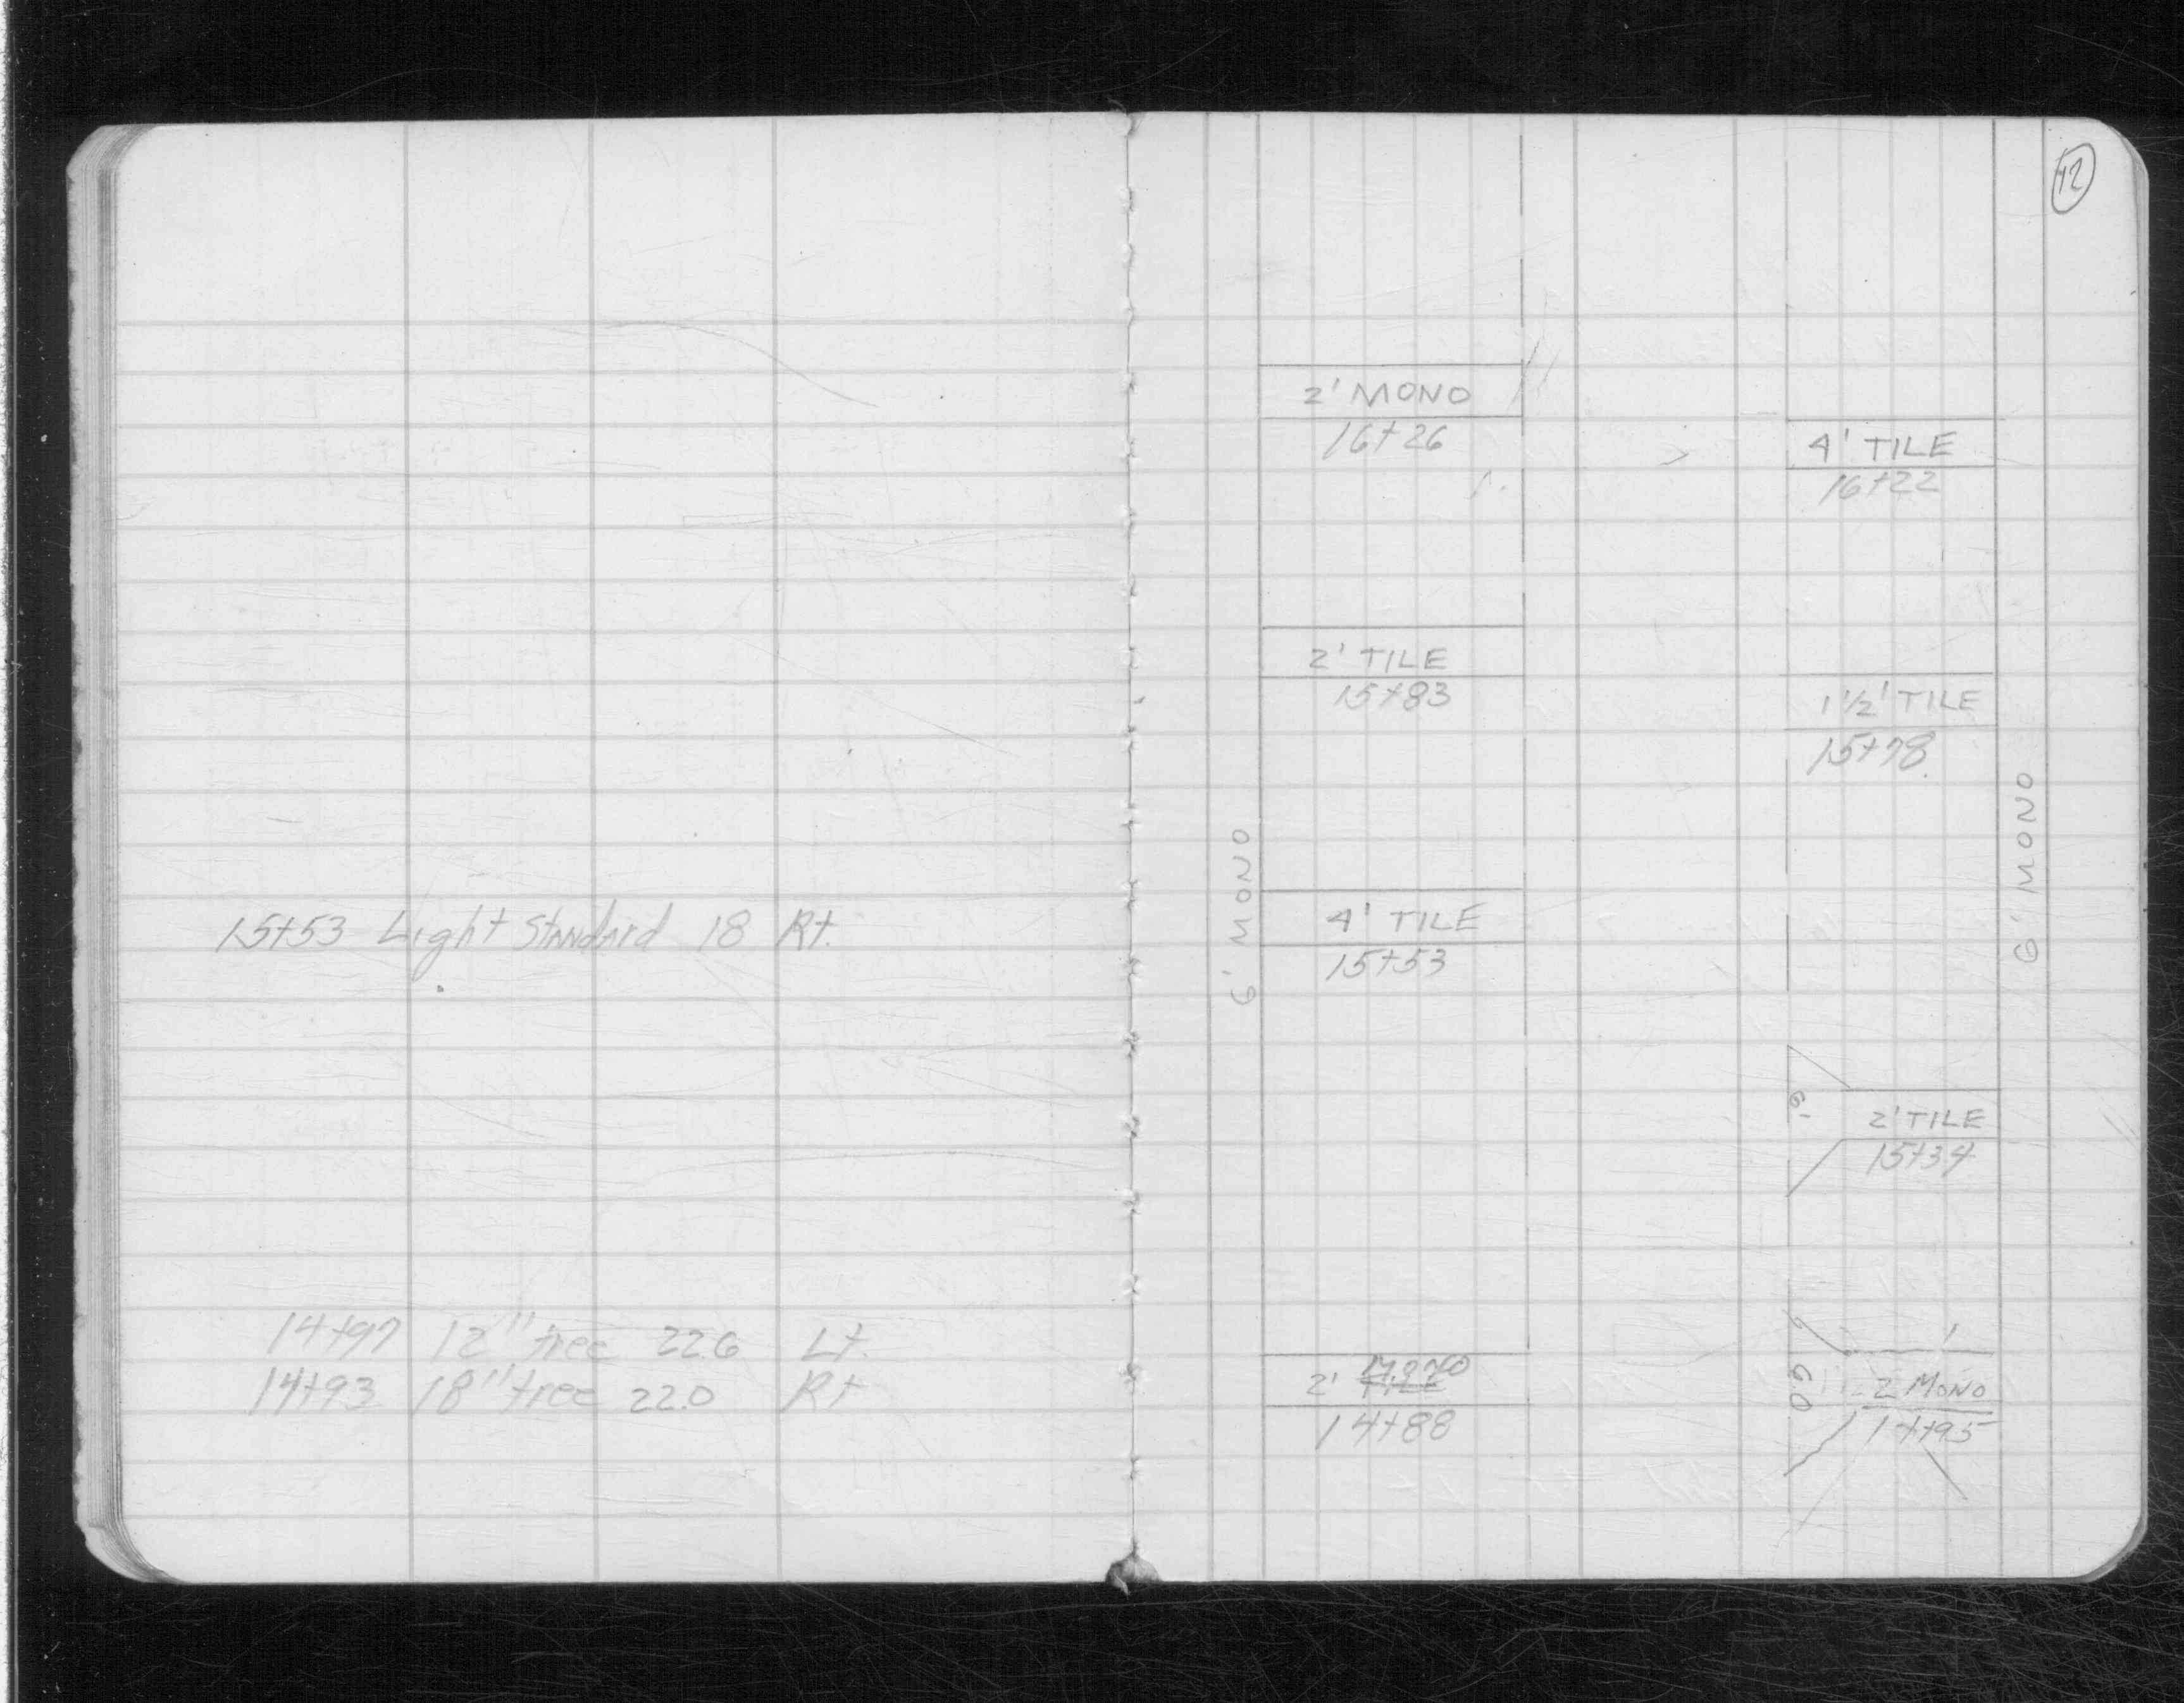 15+53 Light Standard 18 Rt.
14+97 12" tree 22.6 Lt.
14+93 18" tree 22.0 Rt
12
2' MONO
16+26
4' TILE
16+22
2' TILE
15+83
1 1/2' TILE
15+78
6' MONO
6' MONO
4' TILE
15+53
6'
2' TILE
15+34
2'
14+88
6.0
2 MONO
14+95